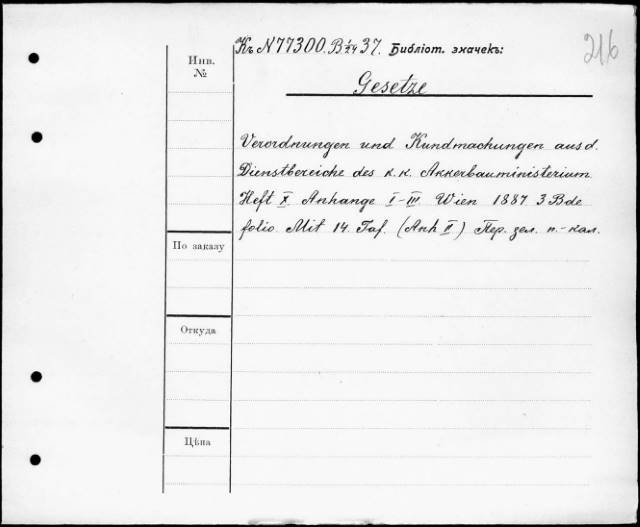 Къ N 77300. B 1/24 37. Библіот. значекъ:
216
Инв.
№
Gesetze
Verordnungen und Kundmachungen aus d.
Dienstbereiche des k. k. Akkerbauministerium
Heft X Anhange I-III Wien 1887 3 Bde
folio. Mit 14. Taf. (Anh II) Пер. зел. п.-кал.
По заказу
Откуда
Цѣна